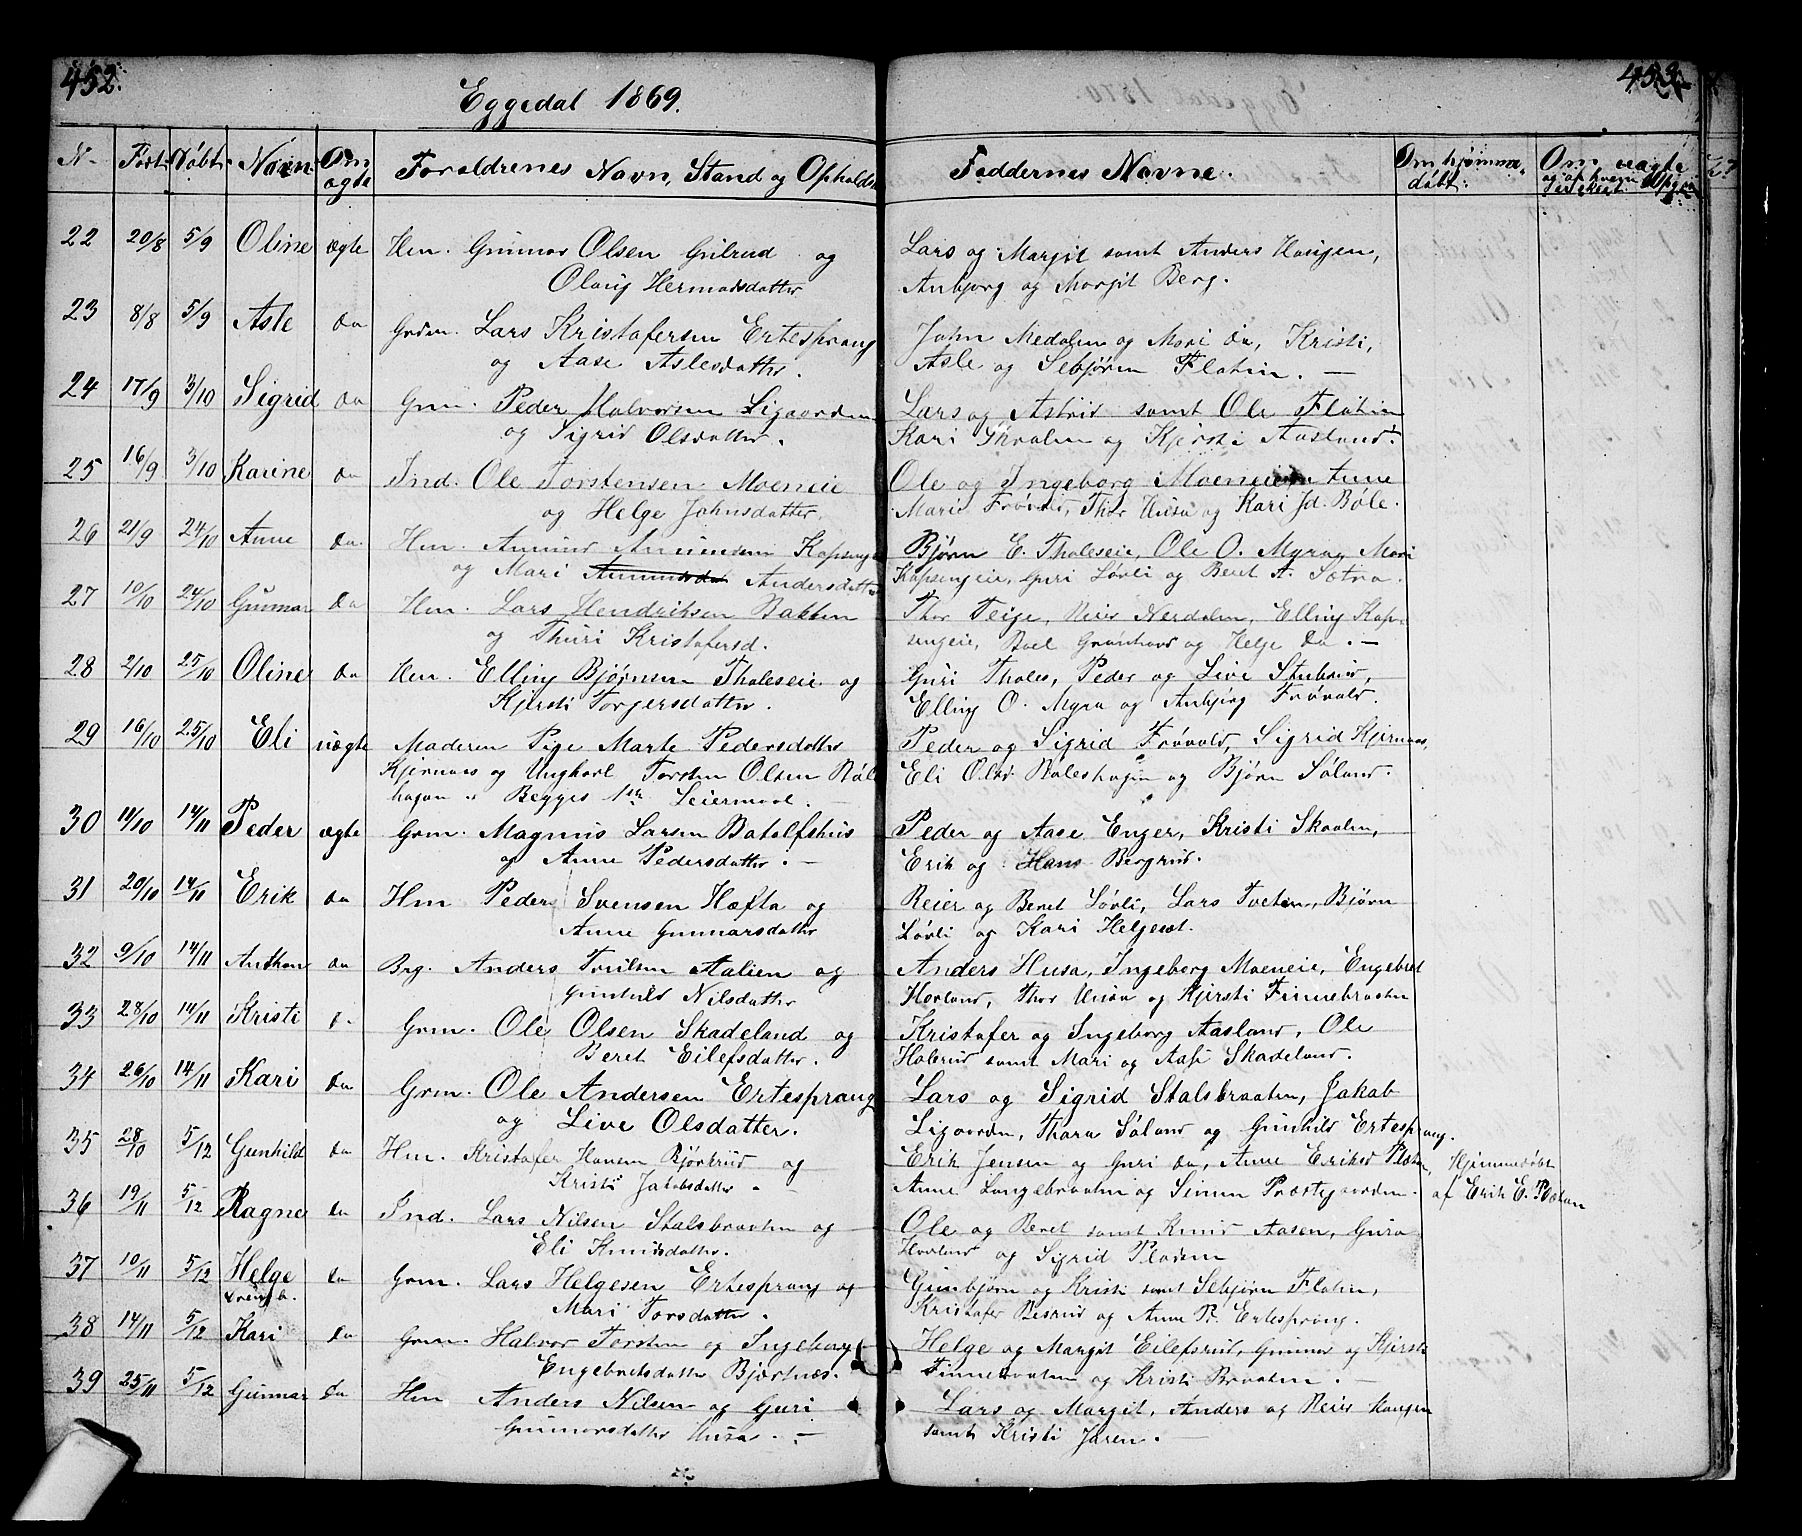 452.
Eggedal 1869.
N. Født Døbt Navn Om ægte Forældrenes Navn, Stand og Opholds
22 20/8 5/9 Oline ægte Hm. Gunnar Olsen Grilrud og
Olaug Hermansdatter
23 8/8 5/9 Asle do Grdm. Lars Kristofersen Ertesprang
og Aase Aslesdatter.
24 17/9 3/10 Sigrid do Grm. Peder Halvorsen Ligaarden
og Sigrid Olsdatter.
25 16/9 3/10 Karine do Ind. Ole Torstensen Moeneie
og Helge Johnsdatter.
26 21/9 24/10 Anne do. Hm. Amund Amundsen Kopseng
og Mari Andersdatter
27 10/10 24/10 Gunnar do Hm. Lars Hendriksen Bakken
og Thuri Kristofersd.
28 2/10 25/10 Oline do Hm. Elling Bjørnsen Tholeseie og
Kjersti Torgersdatter.
29 16/10 25/10 Eli uægte Moderen Pige Marte Pedersdatter
Kjernaas og Ungkarl Torsten Olsen Bøle
hagan. Begges 1ste Leiermaal.
30 11/10 14/11 Peder ægte Grm. Magnus Larsen Batalfshus
og Anne Pedersdatter. —
31 20/10 14/11 Erik do Hm Peder Svensen Hæfta og
Anne Gunnarsdatter
32 9/10 14/11 Anthon do Brg. Anders Truilsen Aalien og
Gunhild Nilsdatter
33 28/10 14/11 Kristi do Grm. Ole Olsen Skadeland og
Beret Eilefsdatter.
34 26/10 14/11 Kari do Grm. Ole Andersen Ertesprang
og Live Olsdatter.
35 28/10 5/12 Gunhild do Hm. Kristofer Hansen Bjørkrud og
Kristi Jakobsdatter.
36 19/11 5/12 Ragne do Ind. Lars Nilsen Stalsbraaten og
Eli Knudsdatter.
37 10/11 5/12 Helge do Grm. Lars Helgesen Ertesprang og
Mari Torsdatter.
38 14/11 5/12 Kari do Grm. Halvor Torsten og Ingeborg
Engebretsdatter Bjørknes.
39 25/11 5/12 Gunnar do Hm Anders Nilsen og Guri
Gunnarsdatter Husa. —
453.
Faddernes Navne. Om hjemmedøbt: Om uægte
Lars og Margit samt Anders Haugen,
Anbjørg og Margit Berg.
John Medalen og Mari do, Kristi,
Asle og Sebjøren Flatin. —
Lars og Astrid samt Ole Flatin
Kari Skaalen og Kjersti Aasland.
Ole og Ingeborg Moeneie Anne
Marie Frøvold, Thor Husa og Kari Jd. Bøle.
Bjørn E. Tholeseie, Ole O. Myra, Mari
Kopsengeie, Guri Løvli og Beret A. Sætra.
Thor Teige, Reier Nerdalen, Elling Kop-
sengeie, Boel Grønhovd og Helge do. —
Guri Tholes, Peder og Live Stubrud,
Elling O. Myra og Anbjørg Frøvold.
Peder og Sigrid Frøvold, Sigrid Kjernaas,
Eli Olsd Bøleshagan og Bjørn Søland.
Peder og Aase Enger, Kristi Skaalen,
Erik og Hans Bergrud.
Reier og Beret Løvli, Lars Tveten, Bjørn
Løvli og Kari Helgeset.
Anders Husa, Ingeborg Moeneie, Engebret
Hovland, Thor Husa og Kjersti Finnebraaten
Kristofer og Ingeborg Aasland, Ole
Holerud samt Mari og Aase Skadeland.
Lars og Sigrid Stalsbraaten, Jakob
Ligaarden, Thora Søland og Gunhild Ertesprang.
Erik Jensen og Guri do, Anne Eriksd Pladsen, Hjemmedøbt
Anne Langebraaten og Simen Præstegaarden. af Erik E. Pladsen
Ole og Beret samt Knud Aasen, Guro
Hovland og Sigrid Pladsen
Gunbjørn og Kristi samt Sebjørn Flatin,
Kristofer Besrud og Anne P. Ertesprang.
Helge og Margit Eilefsrud, Gunnar og Kjersti
Finnebraaten og Kristi Braaten. —
Lars og Margit, Anders og Reier Haugen
samt Kristi Jaren. —